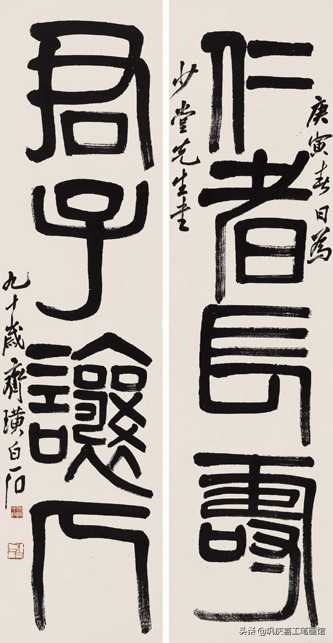 仁者長壽
庚寅春日為
少堂先生書
君子讓人
九十歲齊璜白石
头条 @巩庆喜工笔画馆